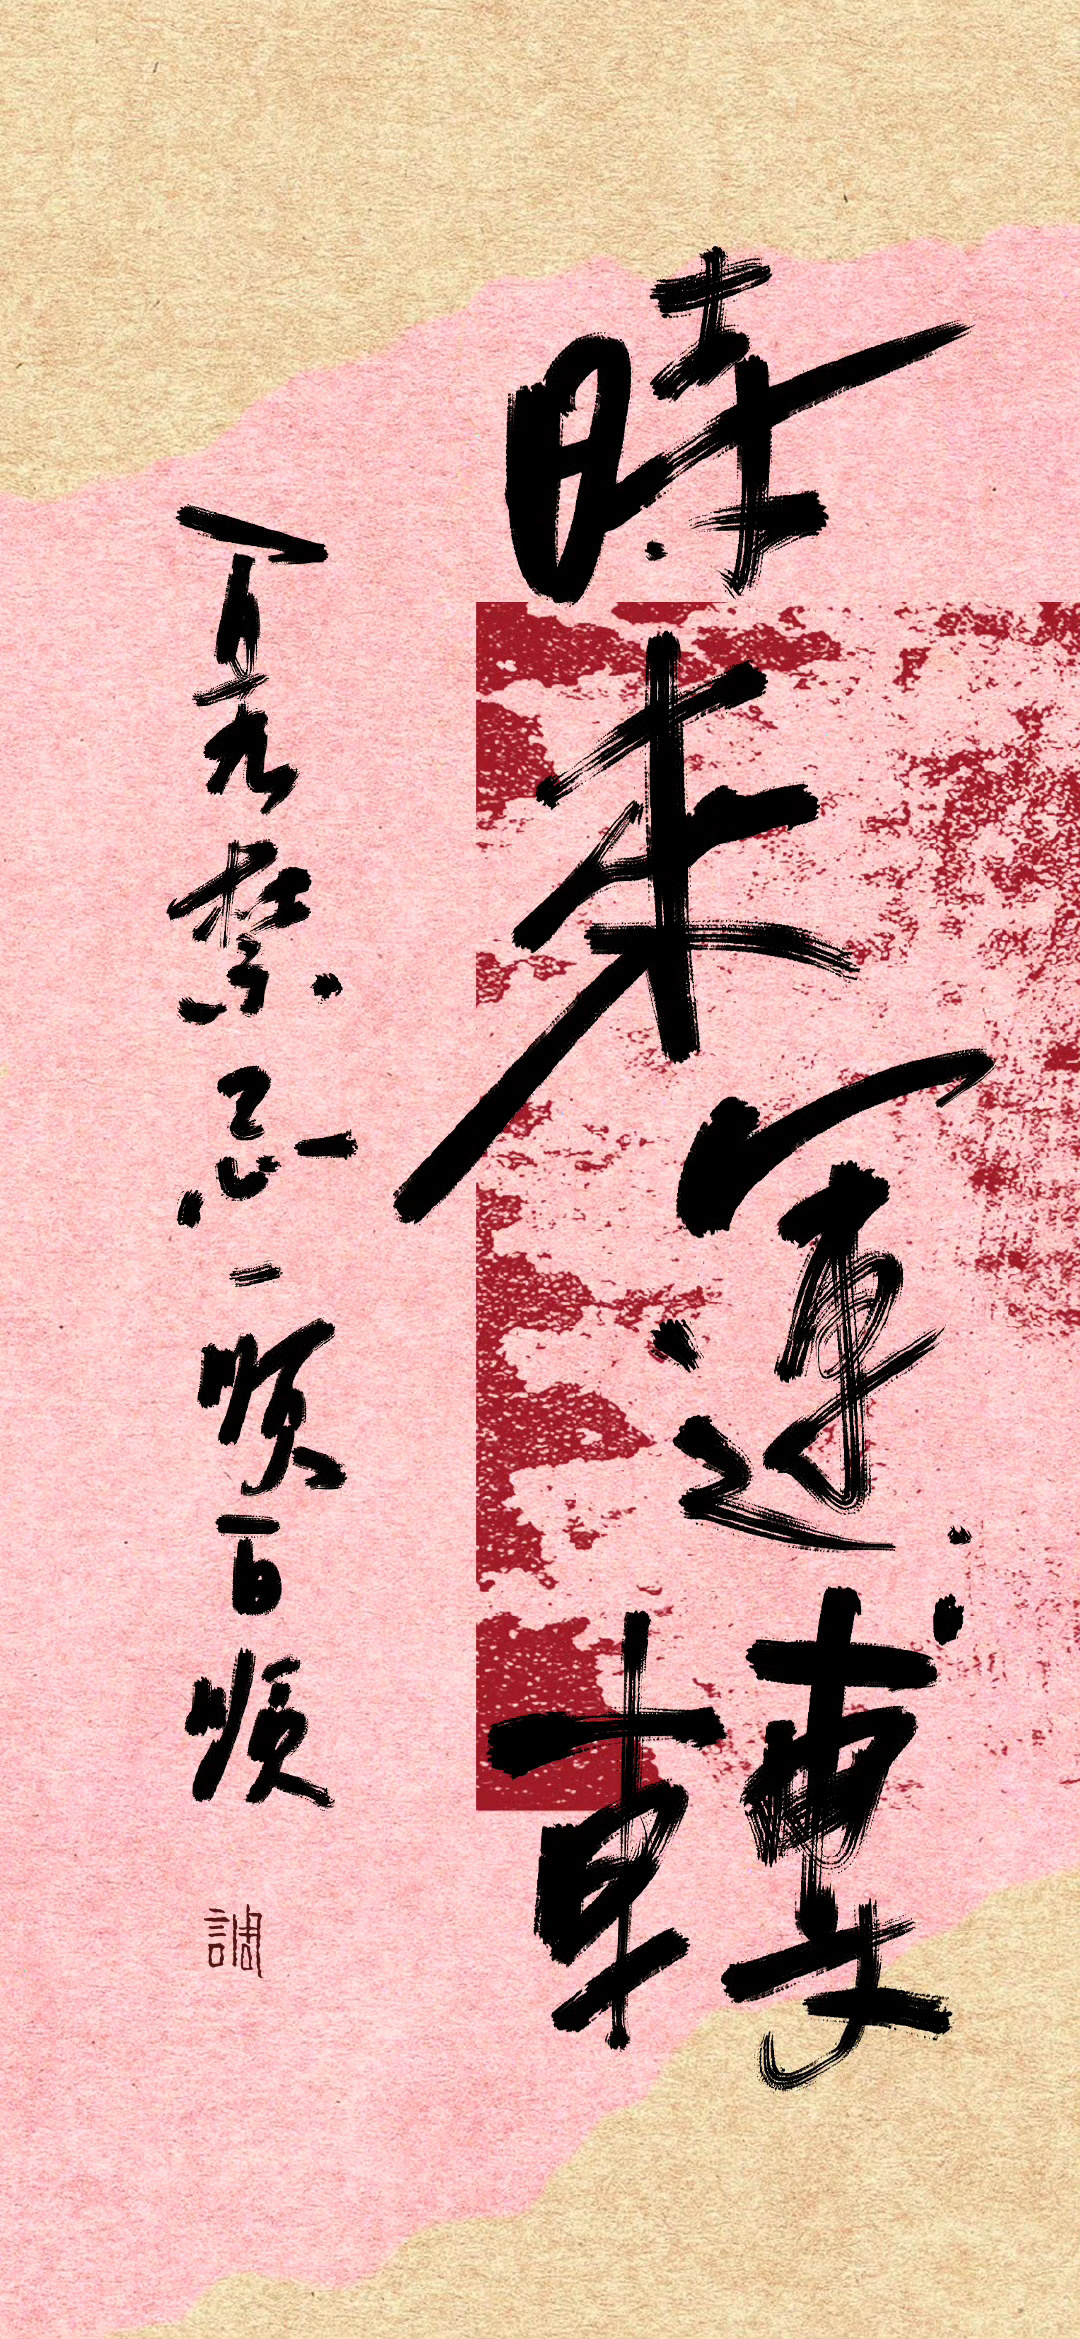 時來運轉
百無禁忌一順百順
調